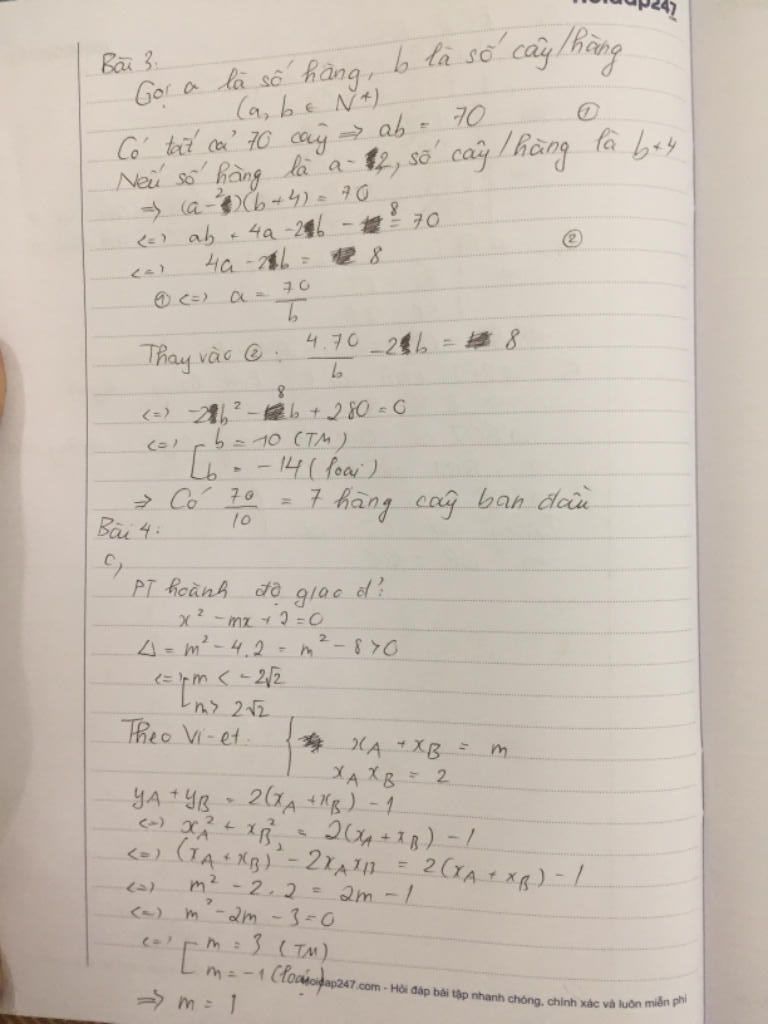 Hoidap247
Bài 3:
Gọi a là số hàng, b là số cây/hàng
(a, b ∈ N*)
Có tất cả 70 cây => ab = 70 ①
Nếu số hàng là a-2, số cây/hàng là b+4
=> (a-2)(b+4) = 70
<=> ab + 4a - 2b - 8 = 70
<=> 4a - 2b = 8 ②
① <=> a = 70/b
Thay vào ②: 4.70/b - 2b = 8
<=> -2b² - 8b + 280 = 0
<=> [ b = 10 (TM)
b = -14 (loại)
=> Có 70/10 = 7 hàng cây ban đầu
Bài 4:
c,
PT hoành độ giao đ':
x² - mx + 2 = 0
Δ = m² - 4.2 = m² - 8 > 0
<=> [ m < -2√2
m > 2√2
Theo Vi-et: { x_A + x_B = m
x_A x_B = 2
y_A + y_B = 2(x_A + x_B) - 1
<=> x_A² + x_B² = 2(x_A + x_B) - 1
<=> (x_A + x_B)² - 2x_A x_B = 2(x_A + x_B) - 1
<=> m² - 2.2 = 2m - 1
<=> m² - 2m - 3 = 0
<=> [ m = 3 (TM)
m = -1 (loại)
=> m = 1
Hoidap247.com - Hỏi đáp bài tập nhanh chóng, chính xác và luôn miễn phí